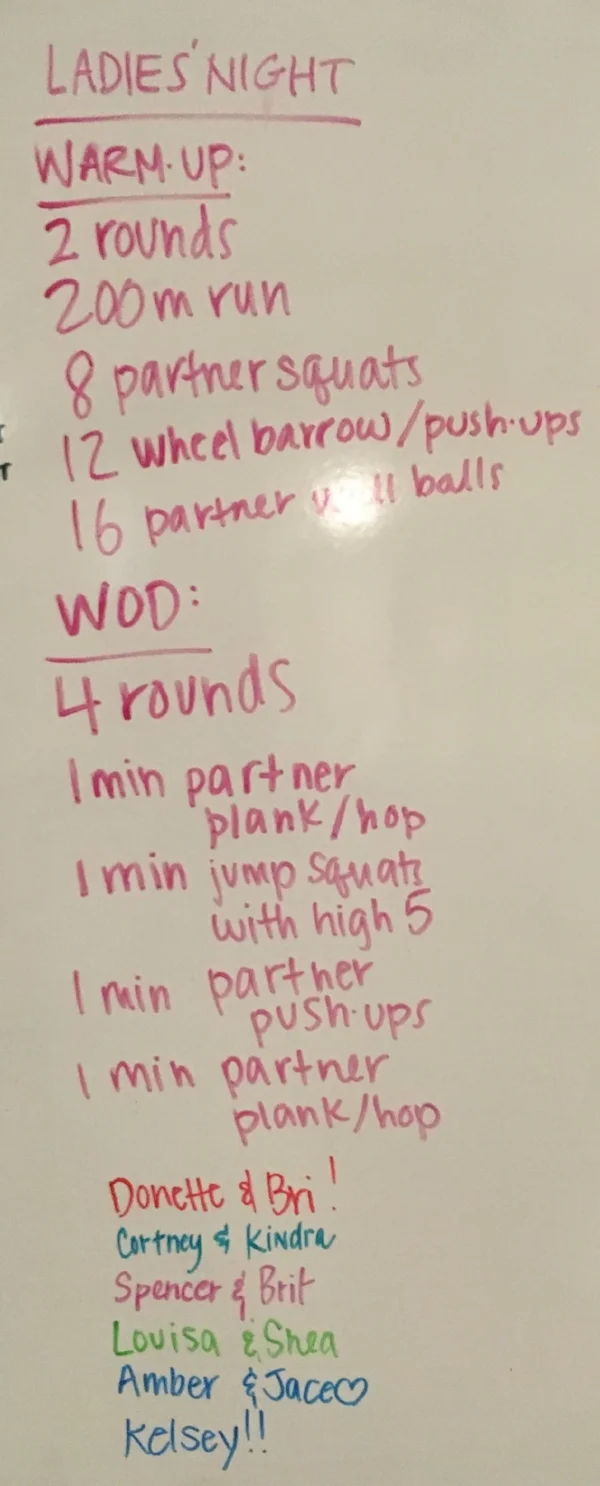 LADIES' NIGHT
WARM-UP:
2 rounds
200m run
8 partner squats
12 wheel barrow/push-ups
16 partner balls
WOD:
4 rounds
1 min partner
plank/hop
1 min jump squats
with high 5
1 min partner
push-ups
1 min partner
plank/hop
Donette & Bri!
Cortney & Kindra
Spencer & Brit
Louisa & Shea
Amber & Jace♡
Kelsey!!